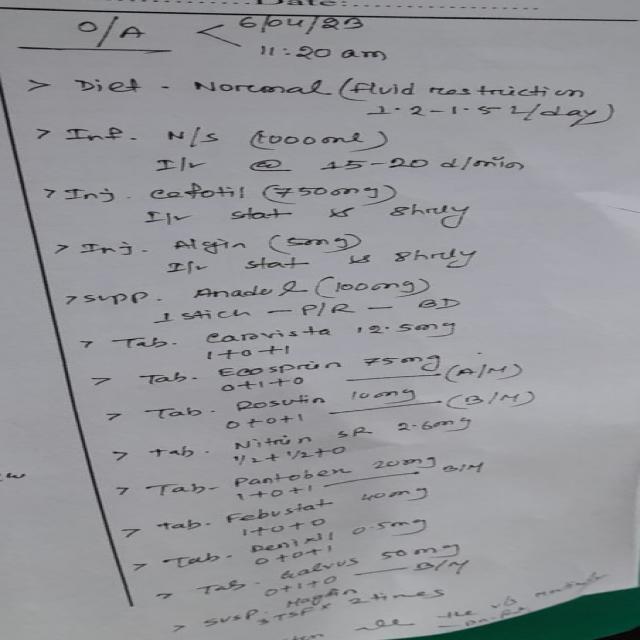 Date:
O/A < 6/04/23
11:20 am
> Diet - Normal (fluid restriction
1.2-1.5 L/day)
> Inf. N/S (1000ml)
I/v @ 15-20 d/min
> Inj. Cefotil (750mg)
I/v stat & 8hrly
> Inj. Algin (5mg)
I/v stat & 8hrly
> Supp. Anadol (100mg)
1 stich - P/R - BD
> Tab. Carovista 12.5mg
1+0+1
> Tab. Ecosprin 75mg (A/M)
0+1+0
> Tab. Rosutin 10mg (B/M)
0+0+1
> Tab. Nitrin SR 2.6mg
1/2+1/2+0
> Tab- Pantobex 20mg B/M
1+0+1
> Tab. Febustat 40mg
1+0+0
> Tab. 0.5mg
0+0+1
> Tab. Galvus 50mg B/M
0+1+0
> Susp.
3 TSFs 2 times
all the